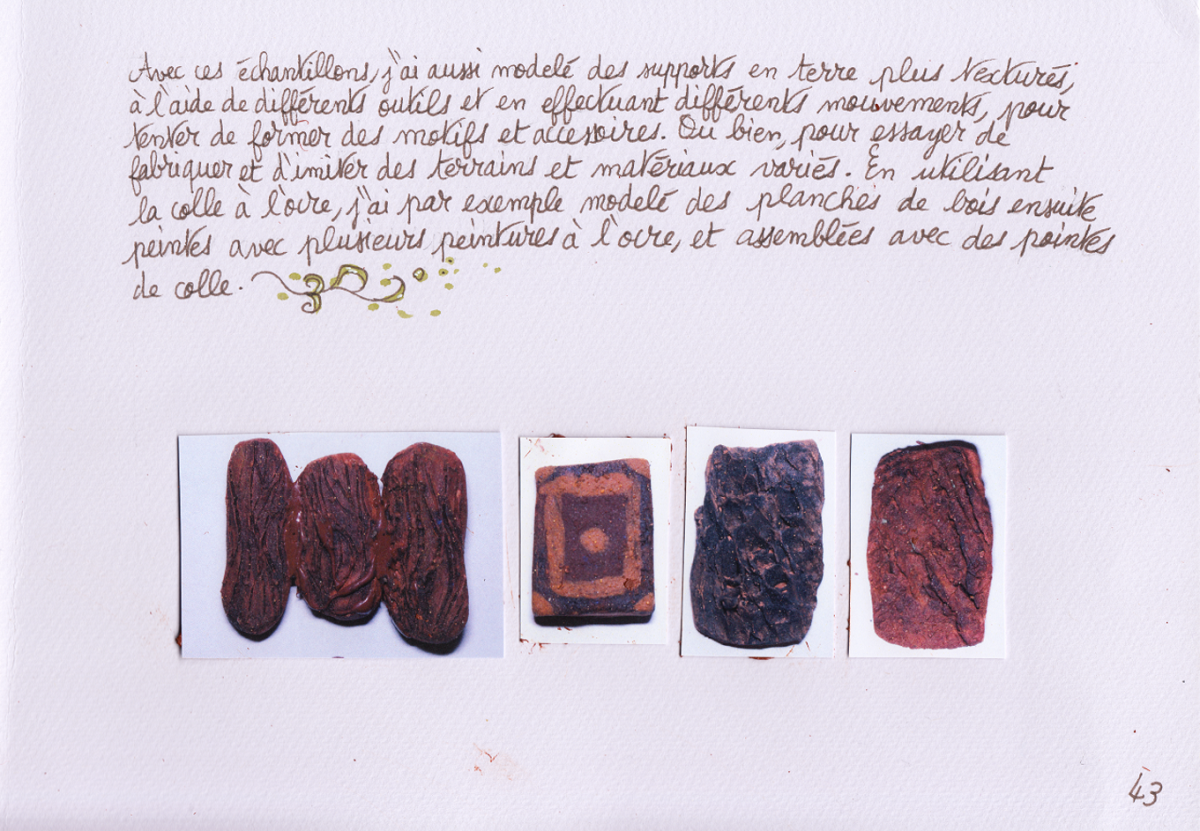 Avec ces échantillons, j'ai aussi modelé des supports en terre plus texturés,
à l'aide de différents outils et en effectuant différents mouvements, pour
tenter de former des motifs et accesoires. Ou bien, pour essayer de
fabriquer et d'imiter des terrains et matériaux variés. En utilisant
la colle à l'ocre, j'ai par exemple modelé des planches de bois ensuite
peintes avec plusieurs peintures à l'ocre, et assemblées avec des pointes
de colle.
43